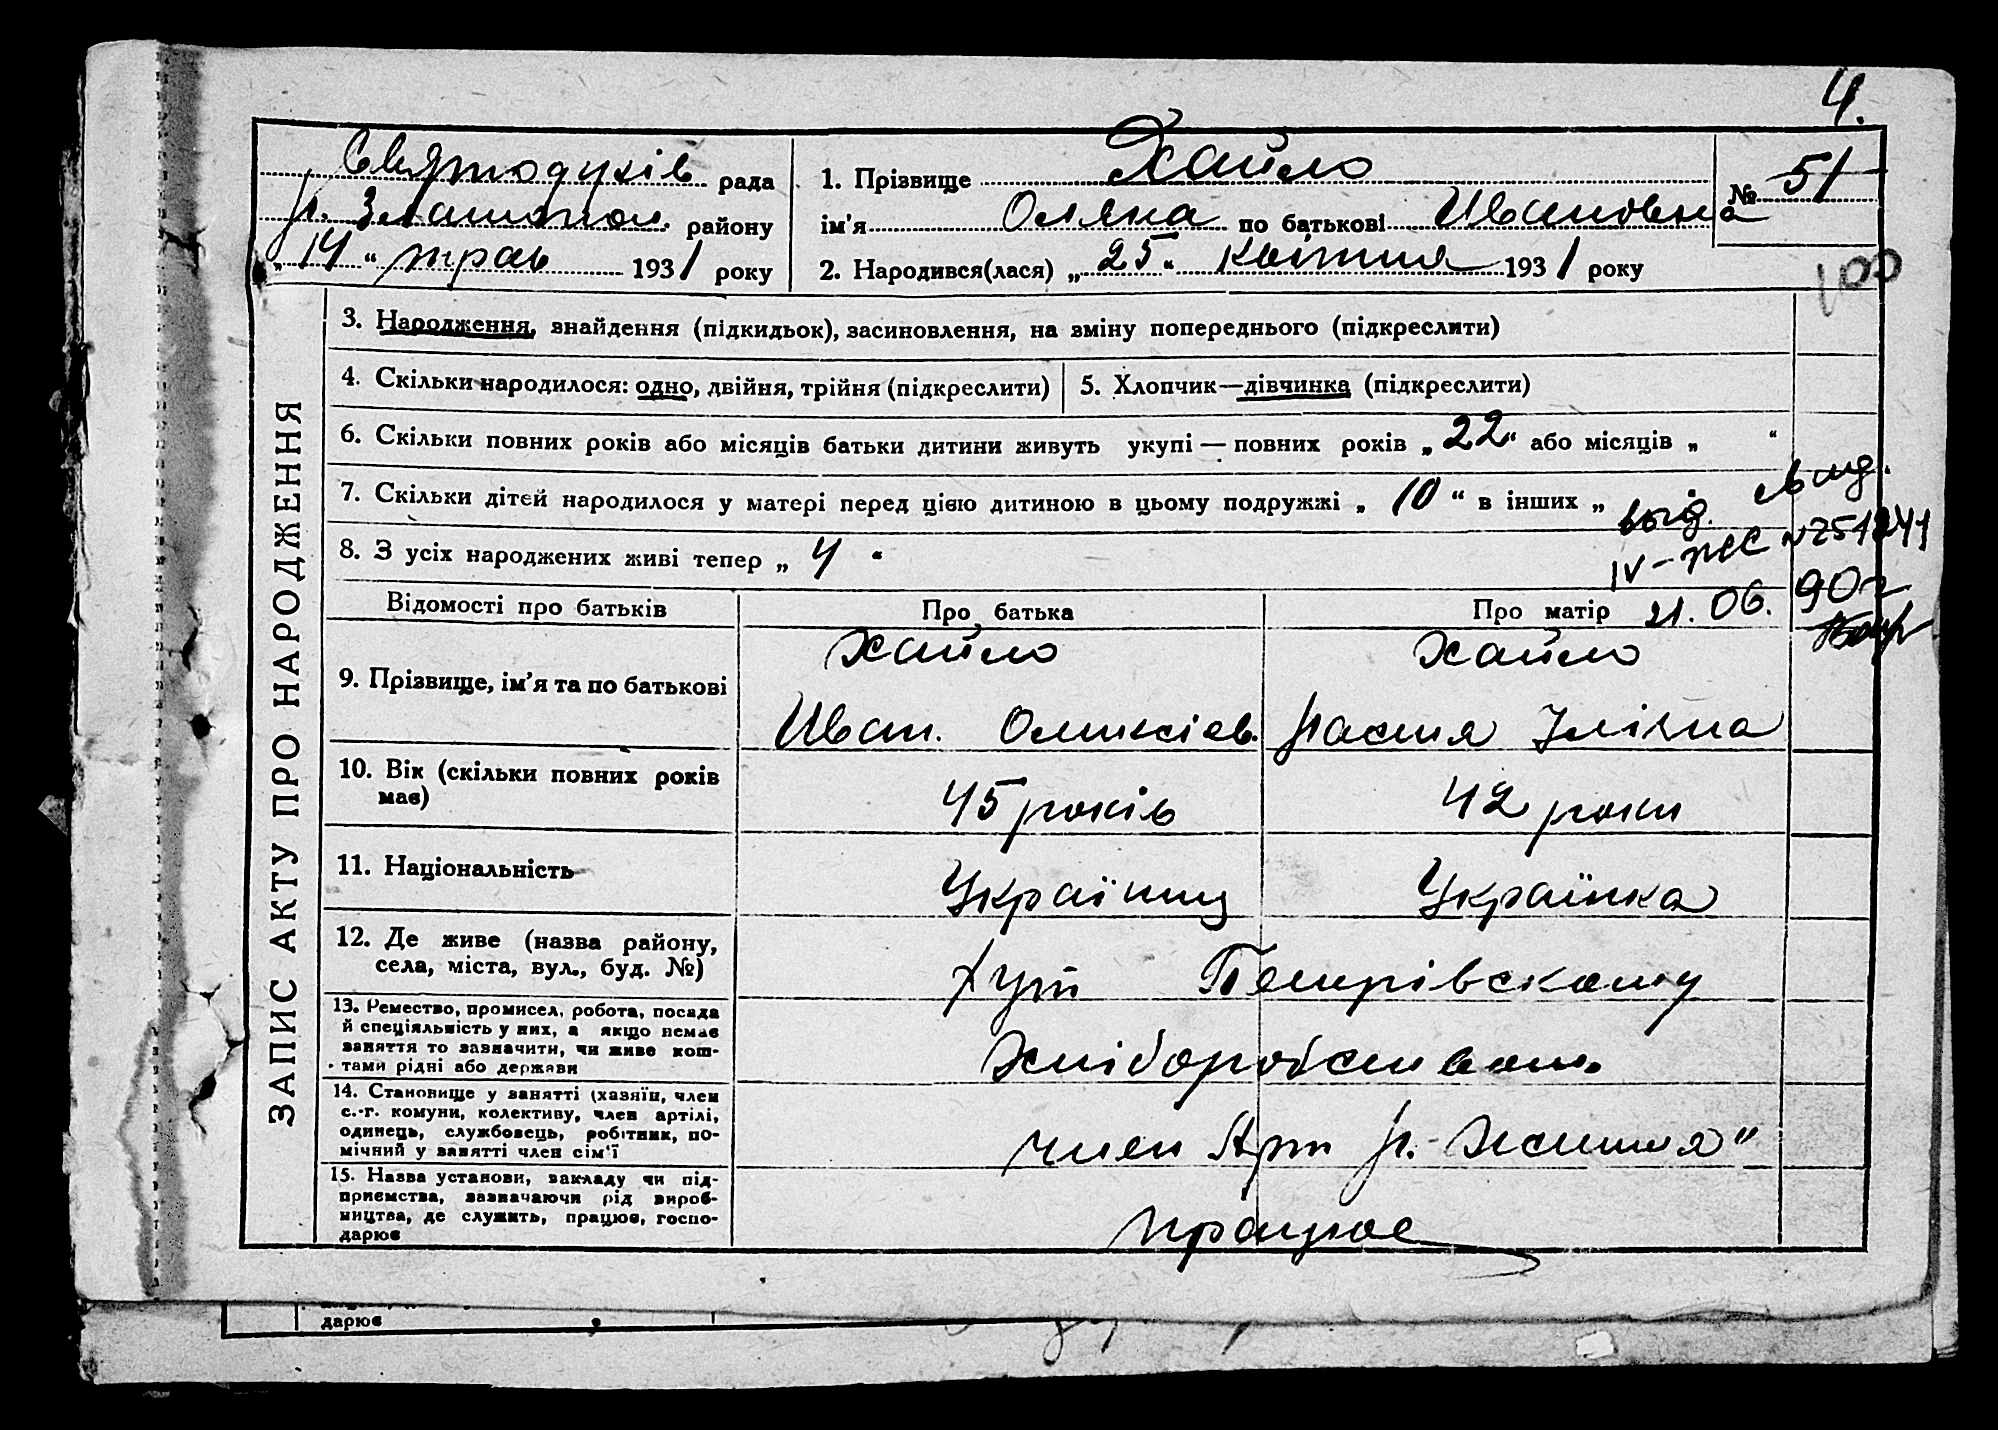 4.
Святодухів рада
р. Златопол. району
„14“ трав 1931 року
1. Прізвище Хайло
ім'я Оляна по батькові Ивановна
2. Народився(лася) „25“ квітня 1931 року
№ 51
100
ЗАПИС АКТУ ПРО НАРОДЖЕННЯ
3. Народження, знайдення (підкидьок), засиновлення, на зміну попереднього (підкреслити)
4. Скільки народилося: одно, двійня, трійня (підкреслити)
5. Хлопчик—дівчинка (підкреслити)
6. Скільки повних років або місяців батьки дитини живуть укупі — повних років „22“ або місяців „ “
7. Скільки дітей народилося у матері перед цією дитиною в цьому подружжі „10“ в інших „
8. З усіх народжених живі тепер „4“
выд.
IV-ЖС №251241
21.06.90г
Відомості про батьків
Про батька
Про матір
9. Прізвище, ім'я та по батькові
Хайло
Иван. Оликсіев.
Хайло
Настя Ілівна
10. Вік (скільки повних років має)
45 років
42 роки
11. Національність
Українць
Українка
12. Де живе (назва району,
села, міста, вул., буд. №)
Хут Петрівскому
13. Ремество, промисел, робота, посада
й спеціяльність у них, а якщо немає
заняття то зазначити, чи живе кош-
тами рідні або держави
Хліборобством
14. Становище у занятті (хазяїн, член
с.-г. комуни, колективу, член артілі,
одинець, службовець, робітник, по-
мічний у занятті член сім'ї
член Арт Н. Життя"
15. Назва установи, закладу чи під-
приємства, зазначаючи рід вироб-
ництва, де служить, працює, госпо-
дарює
працює
дарює